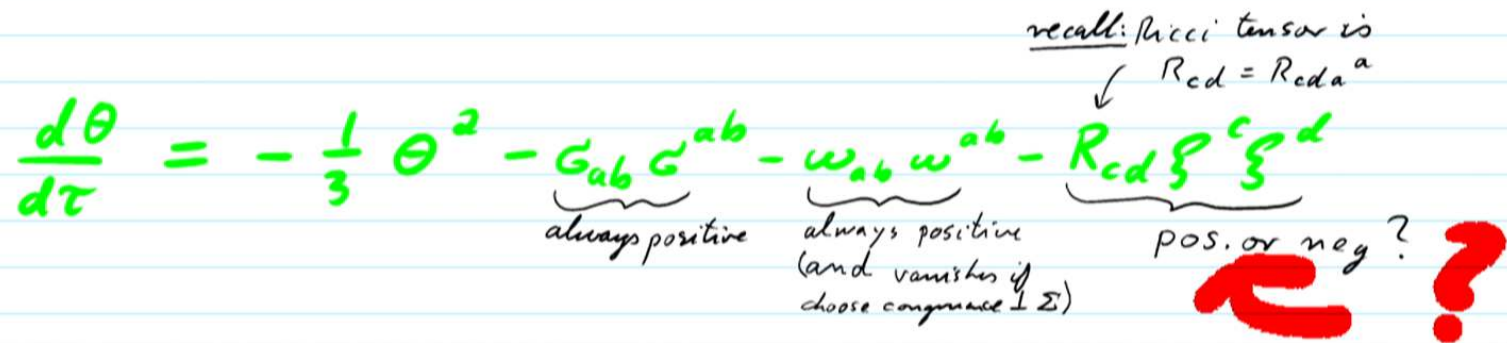 recall: Ricci tensor is
R_{cd} = R_{cda}^a
dθ/dτ = - 1/3 θ^2 - σ_{ab} σ^{ab} - ω_{ab} ω^{ab} - R_{cd} ξ^c ξ^d
always positive
always positive
(and vanishes if
choose congruence ⊥ Σ)
pos. or neg ?
?